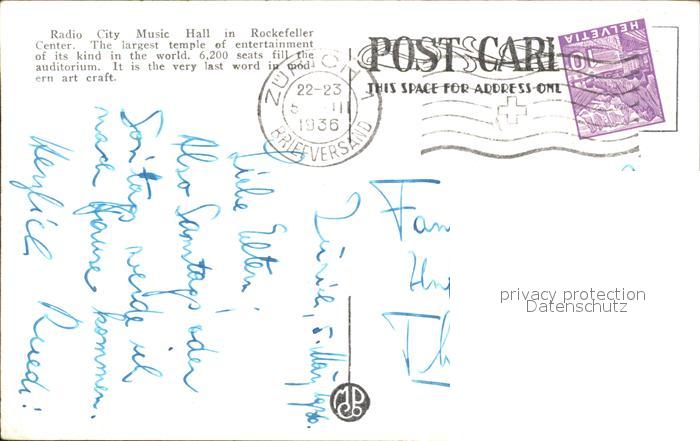 Radio City Music Hall in Rockefeller
Center. The largest temple of entertainment
of its kind in the world. 6,200 seats fill the
auditorium. It is the very last word in mod-
ern art craft.
POST CARD
THIS SPACE FOR ADDRESS ONL
ZÜRICH 1
22-23
5. III
1936
BRIEFVERSAND
HELVETIA
10
Zürich, 5. März 1936.
Liebe Eltern!
Also Samstags oder
Sonntags werde ich
nach Hause kommen.
Herzlich Ruedi!
Fam
Th
MJP
privacy protection
Datenschutz